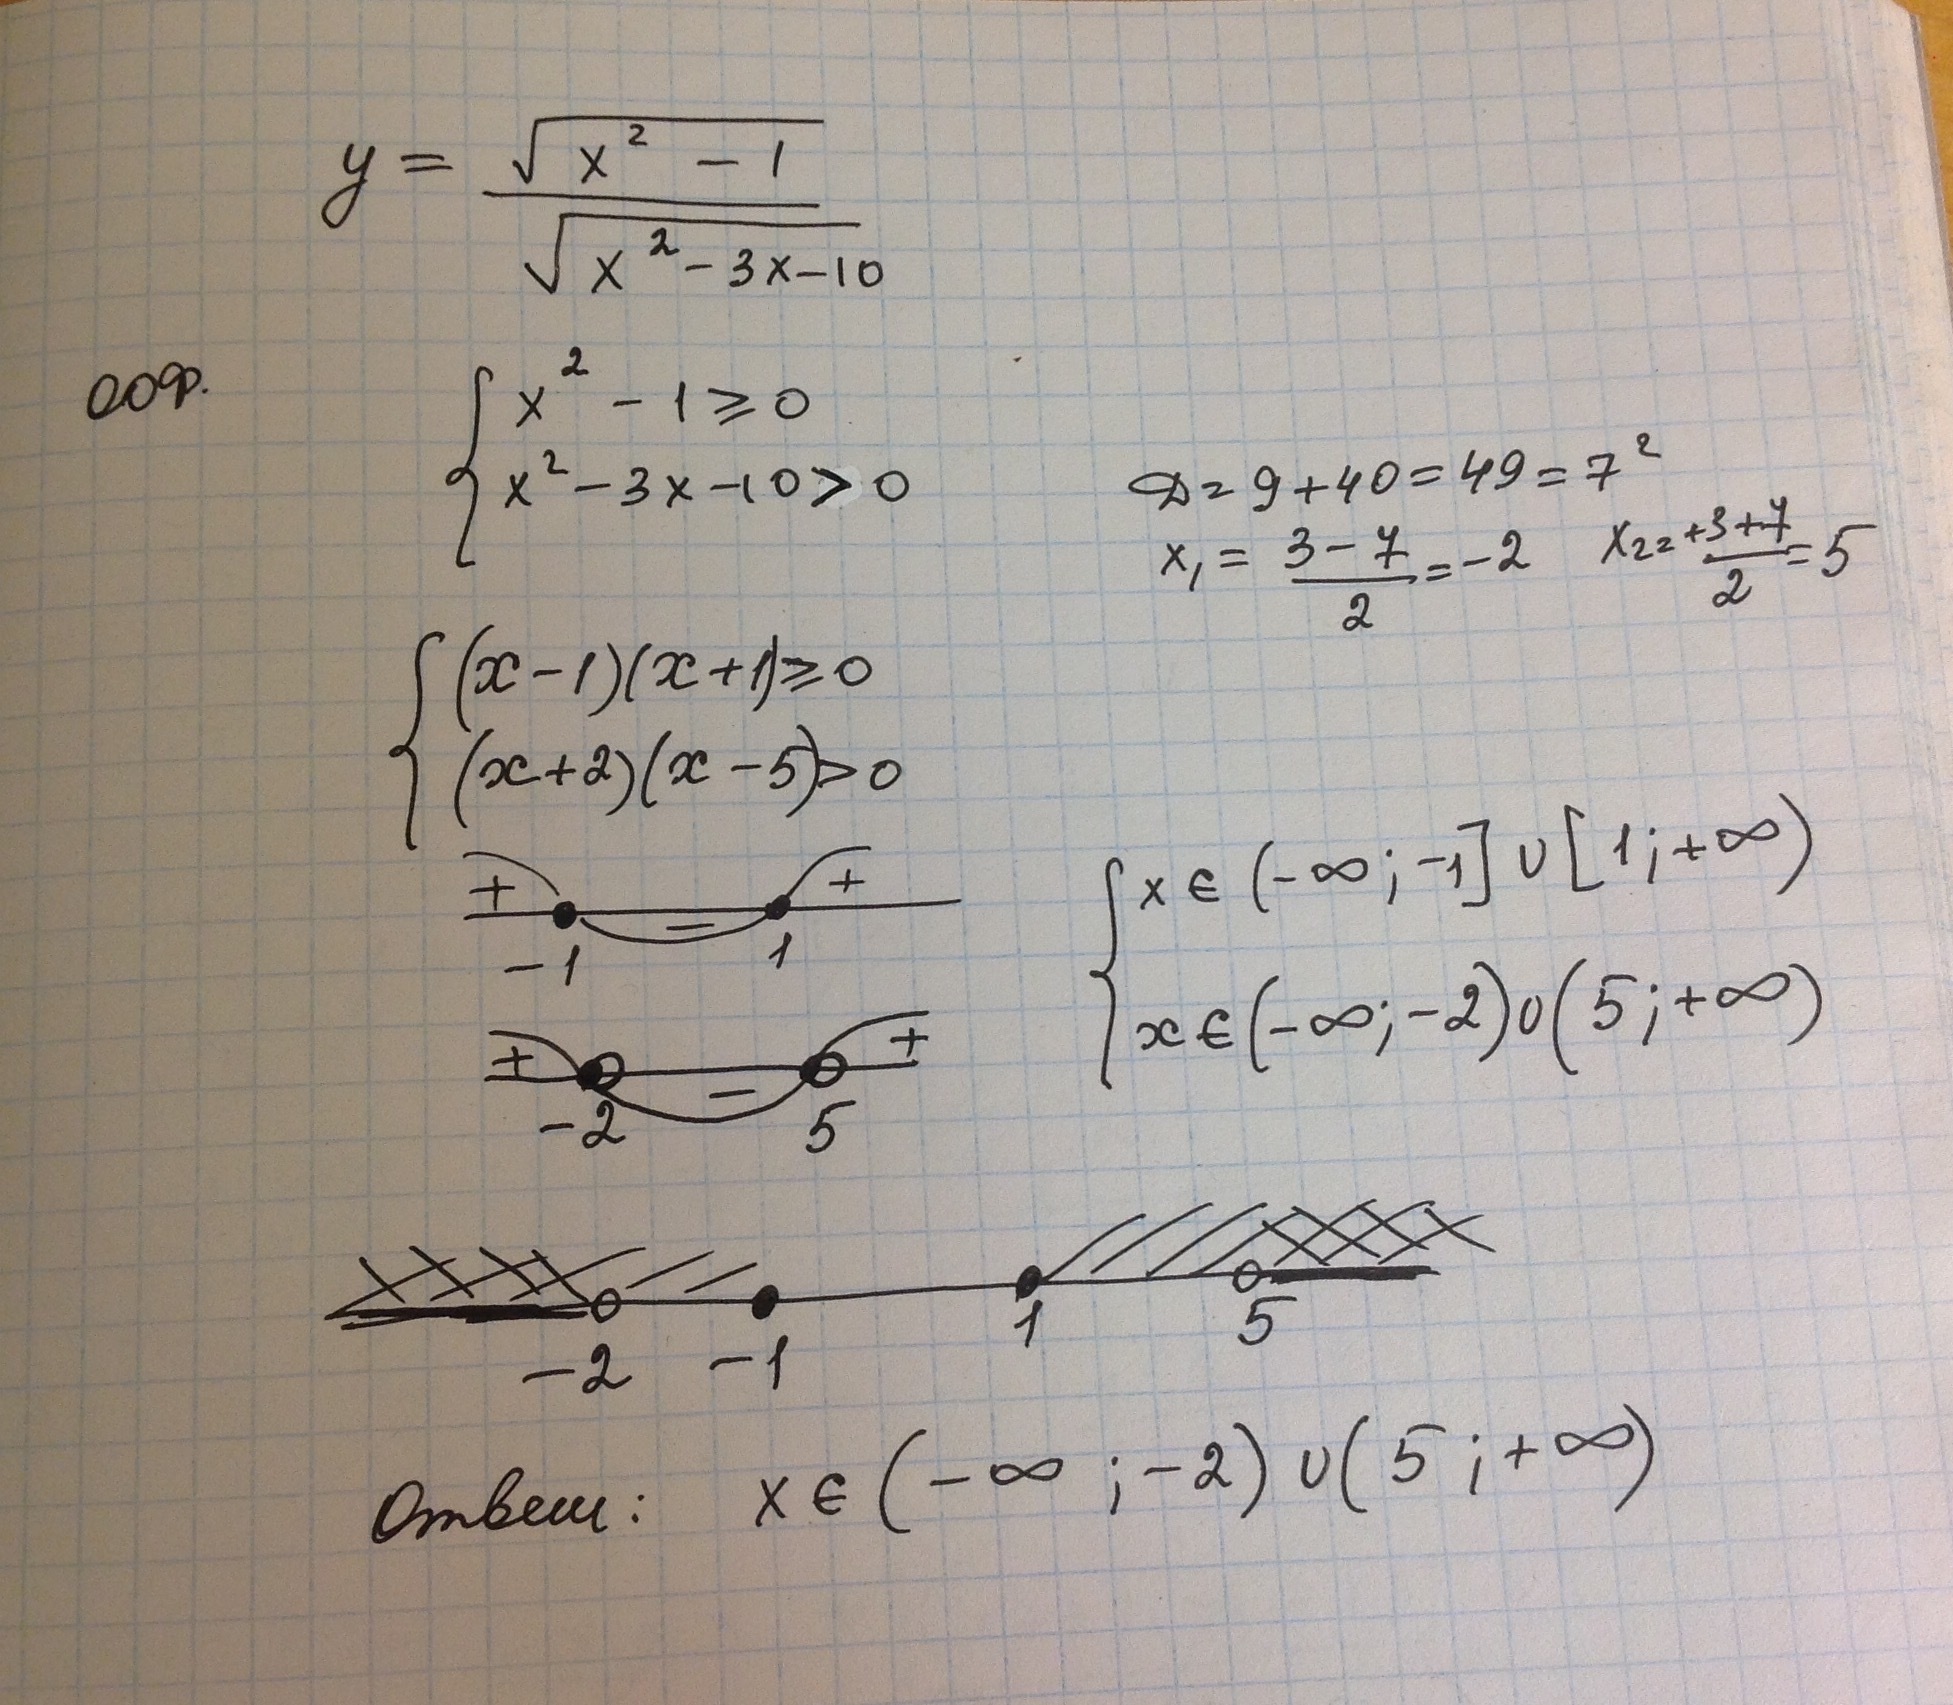 y = √(x² - 1) / √(x² - 3x - 10)
ООФ.
{ x² - 1 ⩾ 0
x² - 3x - 10 > 0
D = 9 + 40 = 49 = 7²
x₁ = (3 - 7)/2 = -2 x₂ = (+3 + 7)/2 = 5
{ (x - 1)(x + 1) ⩾ 0
(x + 2)(x - 5) > 0
+ - +
-1 1
+ - +
-2 5
{ x ∈ (-∞; -1] ∪ [1; +∞)
x ∈ (-∞; -2) ∪ (5; +∞)
-2 -1 1 5
Ответ: x ∈ (-∞; -2) ∪ (5; +∞)